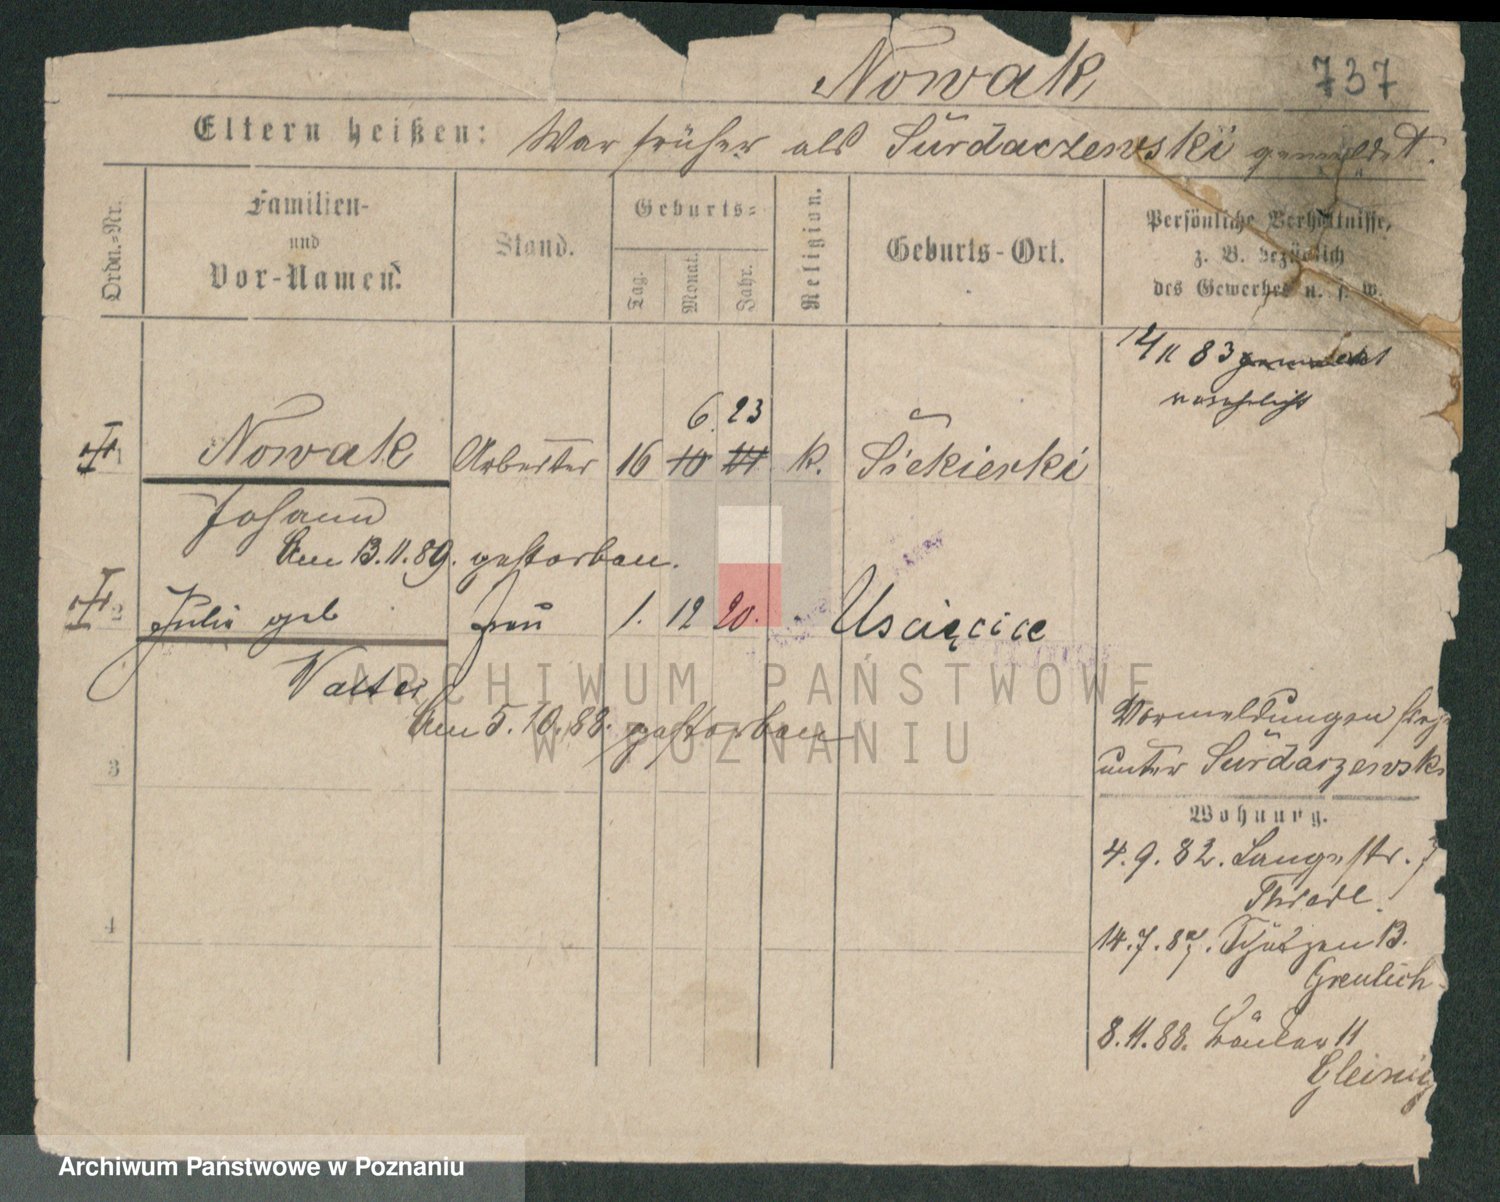 Nowak 737
Eltern heißen: War früher als Surdaczewski gemeldet.
Ordn.-Nr.
Familien-
und
Vor-Namen.
Stand.
Geburts-
Tag.
Monat.
Jahr.
Religion.
Geburts-Ort.
Persönliche Verhältnisse,
z. B. bezüglich
des Gewerbes u. s. w.
83
6. 23
1 Nowak Arbeiter 16 10 k. Siekierki
Johann
Am 13.11.89. gestorben.
2 Julie geb Frau 1. 12 20. Uscięcice
Walter
Am 5.10.88. gestorben
3
Vormeldungen
unter Surdarzewski
Wohnung.
4.9.82. Langestr. 7
4
14.7.87. Schützen 13.
Greulich
8.11.88. 11
Gleinig
ARCHIWUM PAŃSTWOWE
W POZNANIU
Archiwum Państwowe w Poznaniu